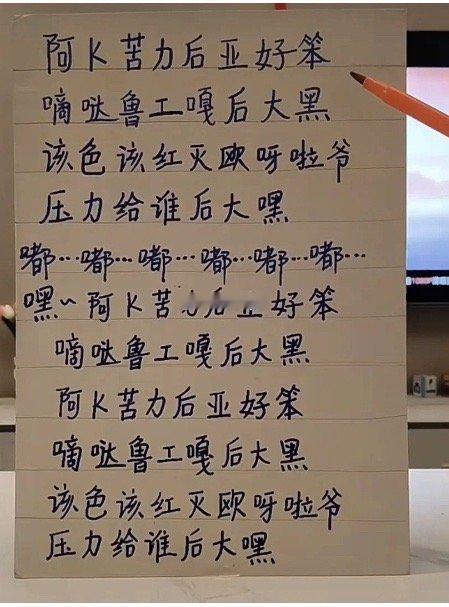 阿K苦力后亚好笨
嘀哒鲁工嘎后大黑
该色该红灭欧呀啦爷
压力给谁后大嘿
嘟…嘟…嘟…嘟…嘟…嘟…
嘿~阿K苦力后亚好笨
嘀哒鲁工嘎后大黑
阿K苦力后亚好笨
嘀哒鲁工嘎后大黑
该色该红灭欧呀啦爷
压力给谁后大嘿